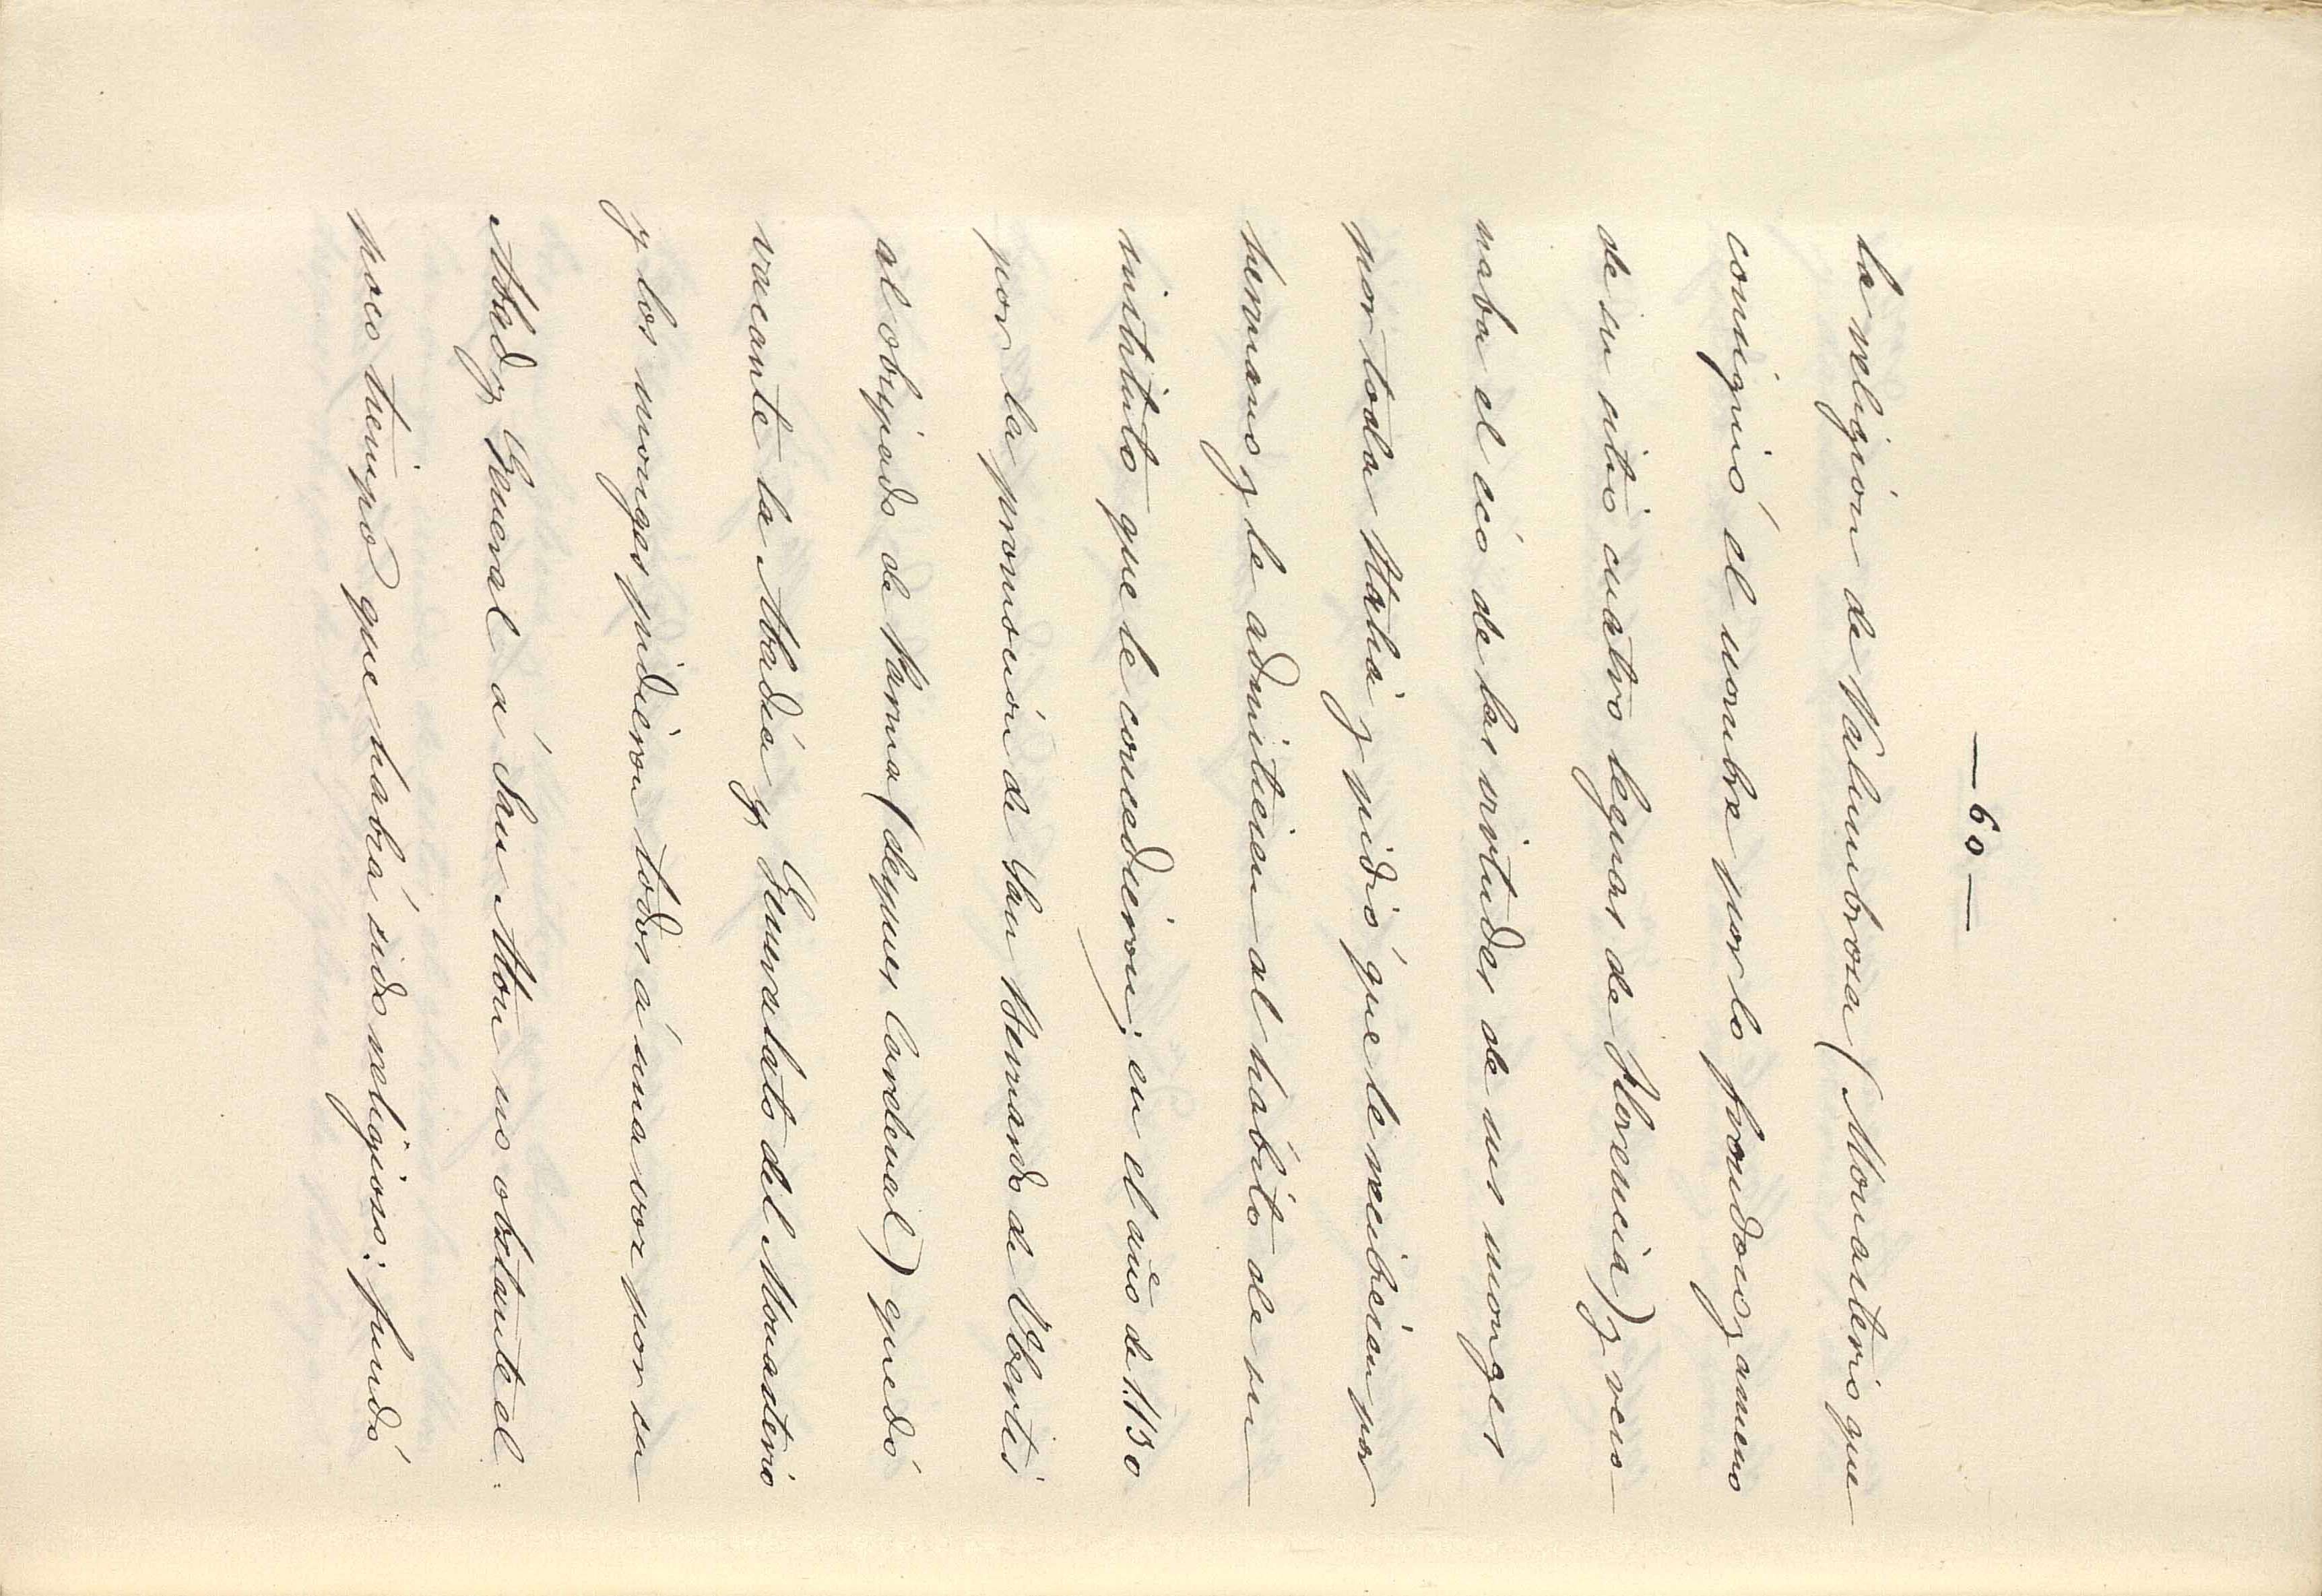 —60—
la religión de Valumbrosa (Monasterio que
consiguió el nombre por lo frondoso y ameno
de su sitio cuatro leguas de Florencia) y reso-
naba el eco de las virtudes de sus monges
por toda Italia y pidió que le recibiesen por
hermano y le admitiesen al hábito de su
instituto que le concedieron; en el año de 1.130
por la promoción de San Bernardo de Ubertis
al obispado de Parma (despues Cardenal) quedó
vacante la Abadía y Generalato del Monasterio
y los monges pidieron todos á una voz por su
Abad y General á San Atón no obstante el
poco tiempo que habia sido religioso: fundó